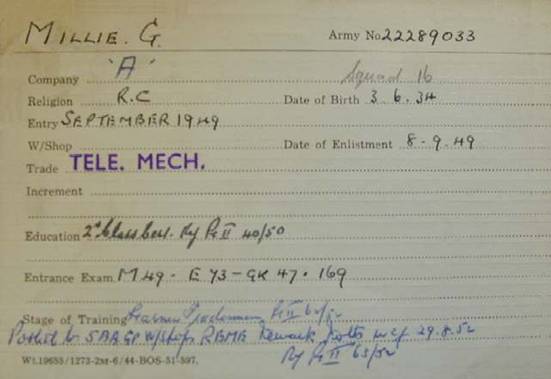 MILLIE. G. Army No 22289033
Company 'A' Squad 16
Religion R.C Date of Birth 3.6.34
Entry SEPTEMBER 1949
W/Shop Date of Enlistment 8-9-49
Trade TELE. MECH.
Increment
Education 2nd Class Cert. Pt II 40/50
Entrance Exam. M 49 - E 73 - GK 47. 169
Stage of Training Learner Tradesman Pt II 62/52
Posted to 5 AA GP W/shops REME Newark Notts wef 29.8.52
Pt II 63/52
Wt.19655/1273-2sr-6/44-BOS-51-597.